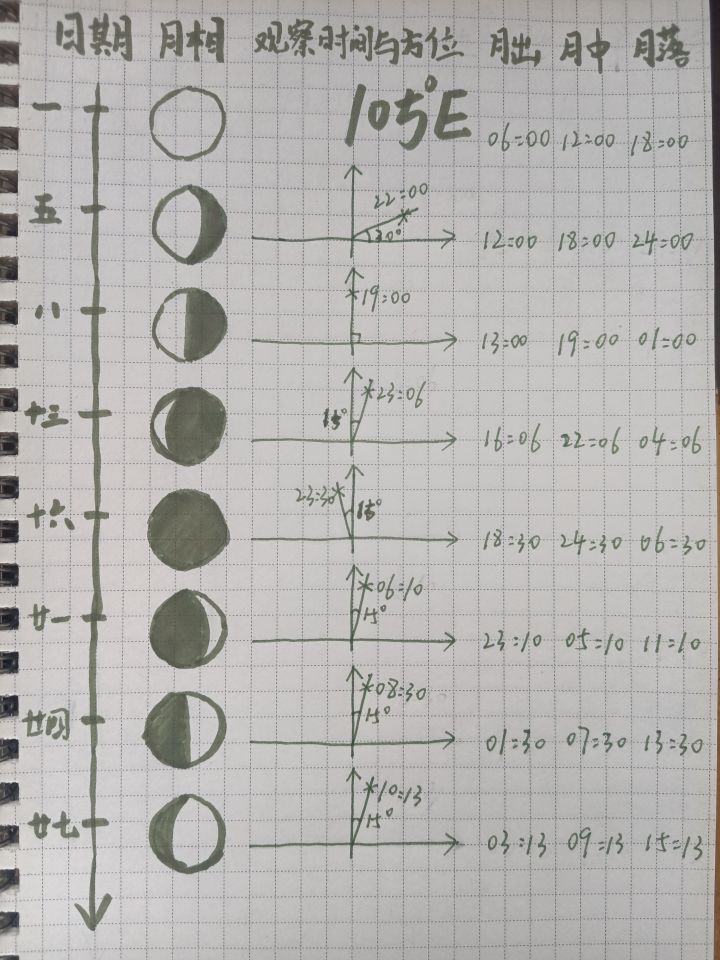 日期 月相 观察时间与方位 月出 月中 月落
一 105°E 06:00 12:00 18:00
五 22:00 30° 12:00 18:00 24:00
八 19:00 13:00 19:00 01:00
十三 15° 23:06 16:06 22:06 04:06
十六 23:30 15° 18:30 24:30 06:30
廿一 06:10 15° 23:10 05:10 11:10
廿四 08:30 15° 01:30 07:30 13:30
廿七 10:13 15° 03:13 09:13 15:13